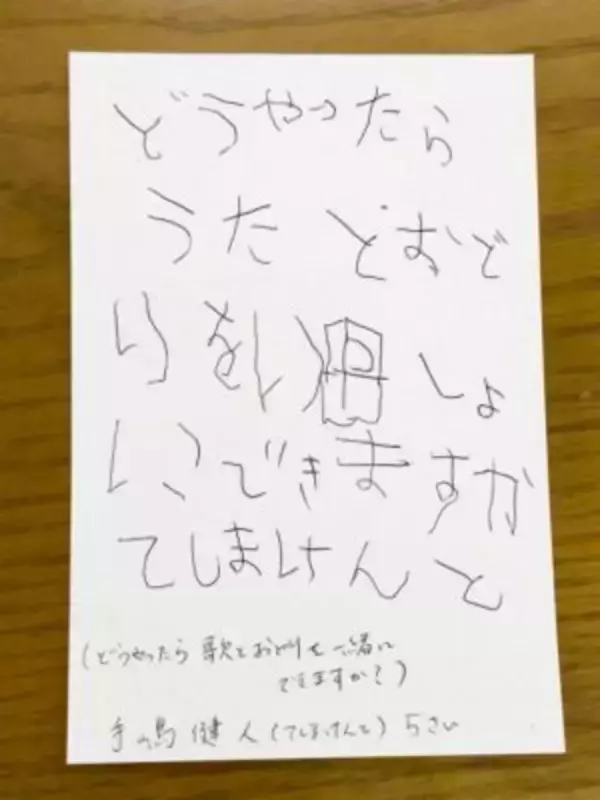 どうやったら
うた とおど
りをい しょ
にできますか
てしまけんと
(どうやったら 歌とおどりを一緒に
できますか？)
手嶋 健人(てしまけんと) 5さい